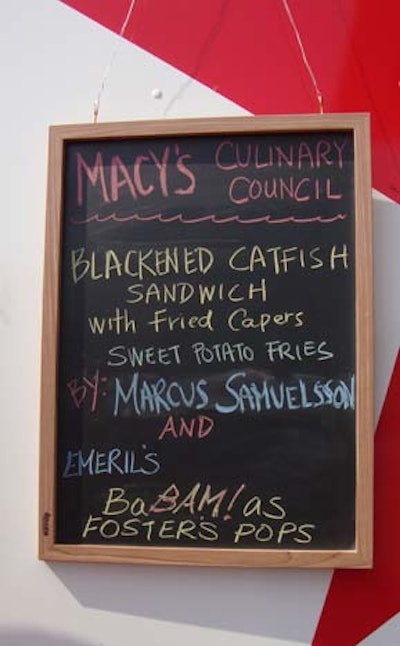 MACY'S CULINARY
COUNCIL
BLACKENED CATFISH
SANDWICH
with Fried Capers
SWEET POTATO FRIES
BY: MARCUS SAMUELSSON
AND
EMERIL'S
BaBAM!as
FOSTER'S POPS